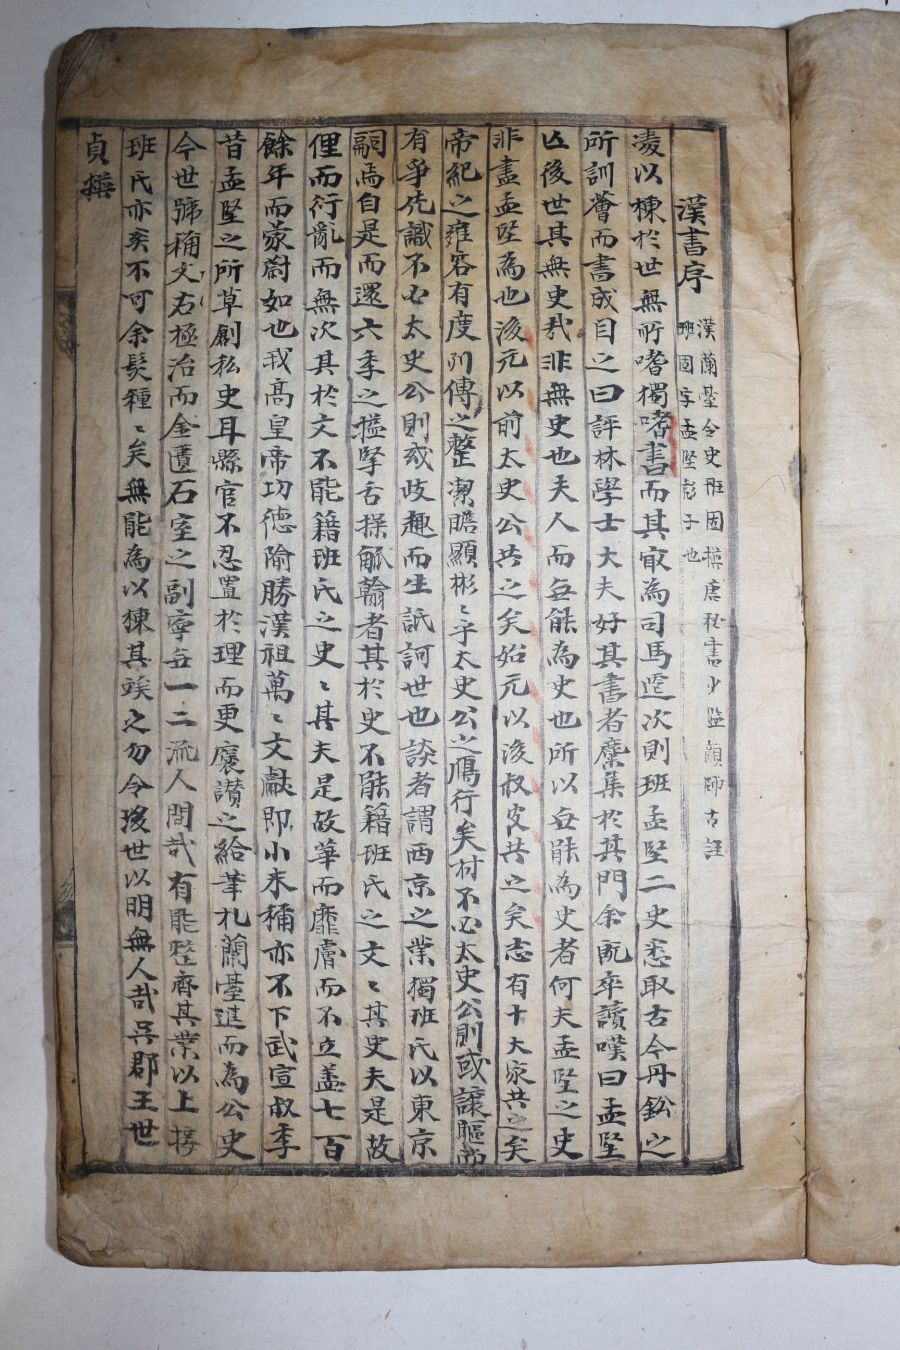 漢書序
漢蘭臺令史班固撰唐秘書少監顔師古註
班固字孟堅彪子也
凌以棟於世無所嗜獨嗜書而其㝡為司馬迁次則班孟堅二史悉取古今丹鈆之
所訓薈而書成目之曰評林學士大夫好其書者麇集於其門余既卒讀嘆曰孟堅
亾後世其無史哉非無史也夫人而每能為史也所以每能為史者何夫孟堅之史
非盡孟堅為也後元以前太史公共之矣始元以後叔皮共之矣志有十大家共之矣
帝紀之雍容有度列傳之整潔贍顯彬〻乎太史公之鴈行矣材不必太史公則或讓驅而
有爭先識不必太史公則或歧趣而生詆訶世也談者謂西京之業獨班氏以東京
嗣焉自是而還六季之搤掔舌操觚翰者其於史不能籍班氏之文〻其史夫是故
俚而行亂而無次其於文不能籍班氏之史〻其夫是故華而靡膚而不立盖七百
餘年而蒙蔚如也我高皇帝功德隃勝漢祖萬〻文獻即小未稱亦不下武宣叔季
昔孟堅之所草創私史耳縣官不忍置於理而更襃讃之給筆札蘭臺進而為公史
今世號稱文右極治而金匱石室之副寧無一二流人間哉有能整齊其業以上接
班氏亦矣不可余髮種〻矣無能為以棟其竢之勿令後世以明無人哉吳郡王世
貞撰